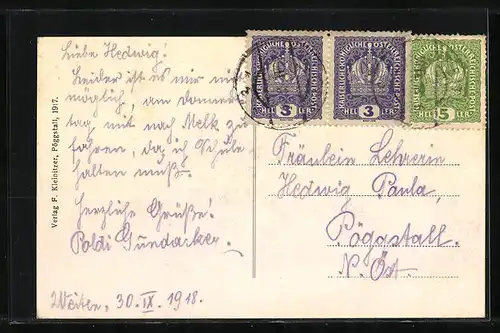 Liebe Hedwig!
Leider ist es mir nicht
möglich, am Donners-
tag mit nach Melk zu
fahren, da ich Schule
halten muß.
Herzliche Grüße!
Poldi Gundacker.
Weiten, 30. IX. 1918.
Verlag F. Kleinitzer, Pöggstall, 1917.
KAISERLICHE KÖNIGLICHE ÖSTERREICHISCHE POST
HELLER 3
KAISERLICHE KÖNIGLICHE ÖSTERREICHISCHE POST
HELLER 3
KAISERLICHE KÖNIGLICHE ÖSTERREICHISCHE POST
HELLER 5
Fräulein Lehrerin
Hedwig Paula,
Pöggstall.
N. Öst.